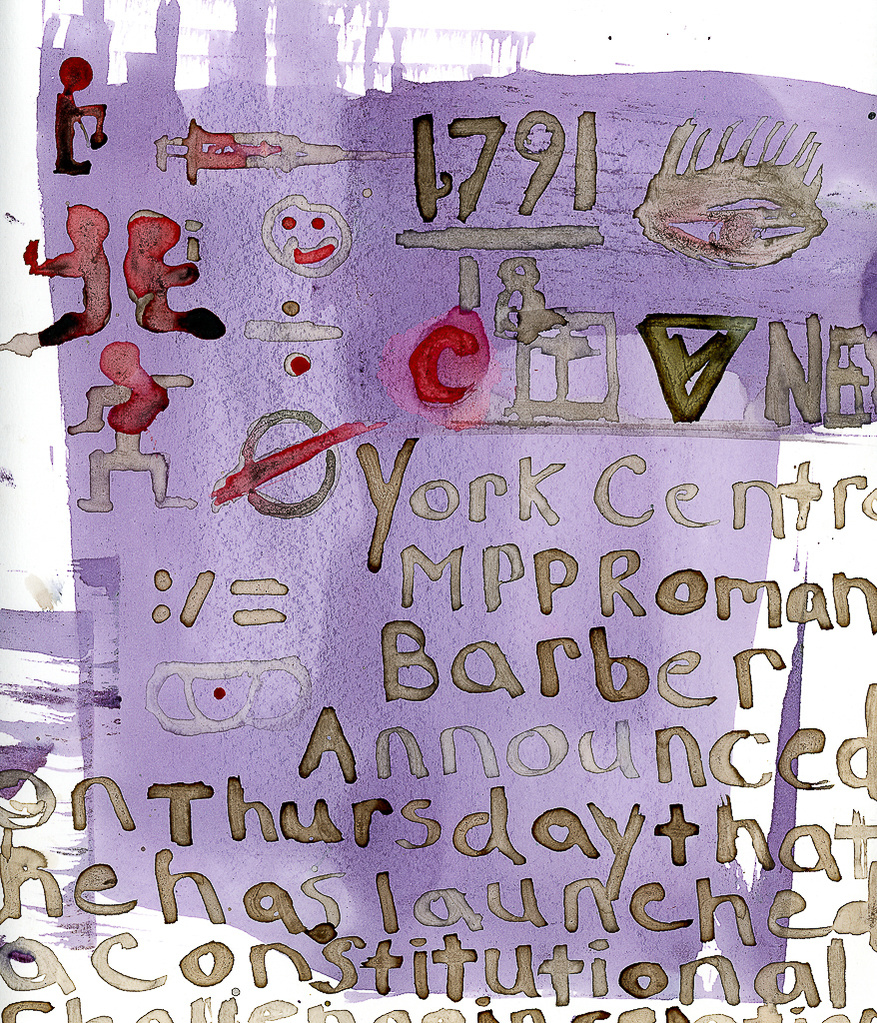 1791
18
C NE
York Centr
MPP Roman
Barber
Announced
on Thursday that
he has launched
a constitutional
Challenge in